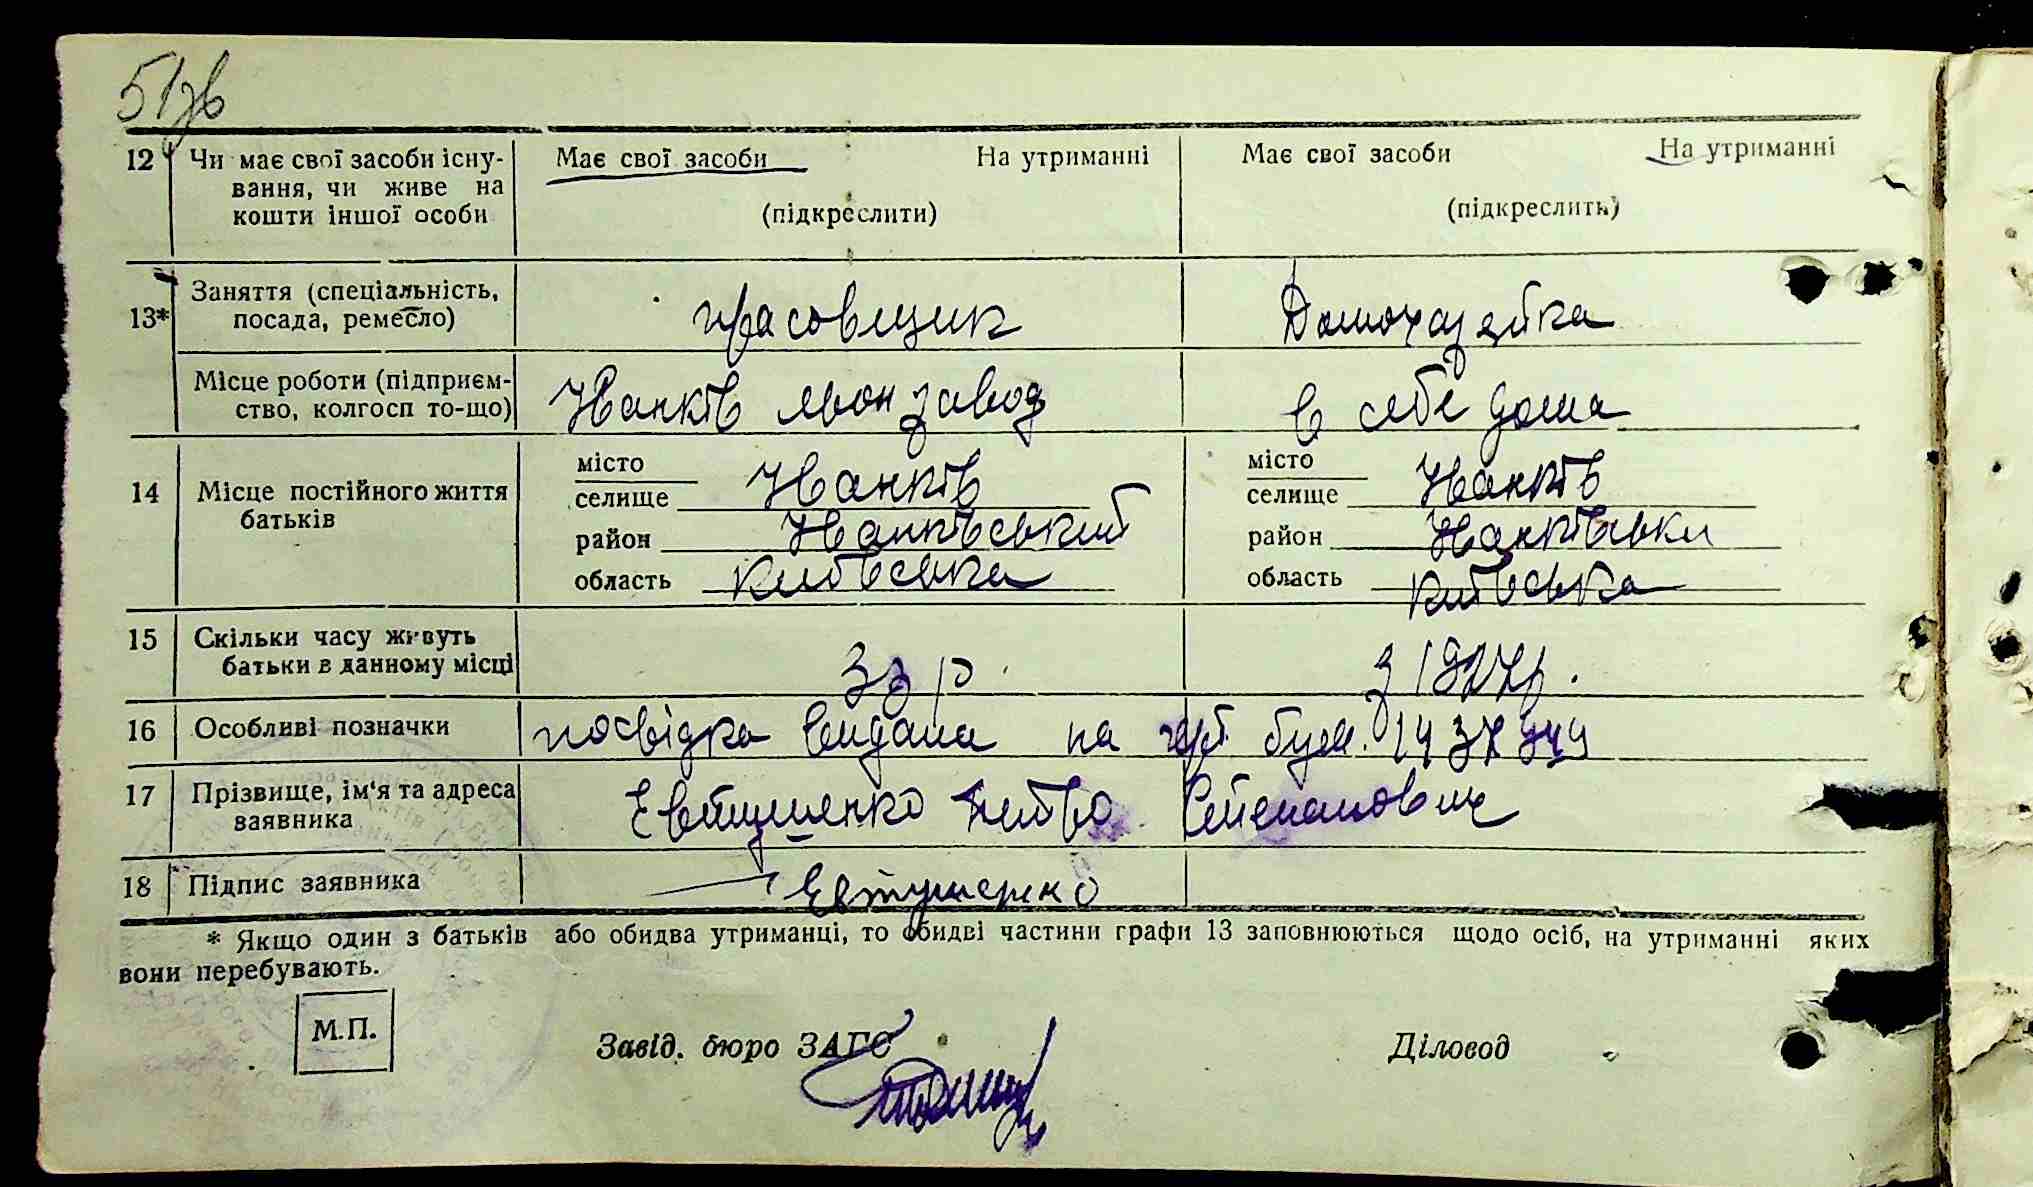 51зв
12 Чи має свої засоби існу-
вання, чи живе на
кошти іншої особи
Має свої засоби На утриманні
(підкреслити)
Має свої засоби На утриманні
(підкреслить)
13* Заняття (спеціальність,
посада, ремесло)
прасовщик
Домохазяйка
Місце роботи (підприєм-
ство, колгосп то-що)
Иванків льонзавод
в себе дома
14 Місце постійного життя
батьків
місто
селище Иванків
район Иванківський
область Київська
місто
селище Иванків
район Иванківськи
область Київська
15 Скільки часу живуть
батьки в данному місці
33 р.
з 1927р.
16 Особливі позначки
посвідка видана на герб. бум.
17 Прізвище, ім'я та адреса
заявника
Евтушенко Петро Степанович
18 Підпис заявника
Евтушенко
* Якщо один з батьків або обидва утриманці, то обидві частини графи 13 заповнюються щодо осіб, на утриманні яких
вони перебувають.
М.П.
Завід. бюро ЗАГС
Діловод